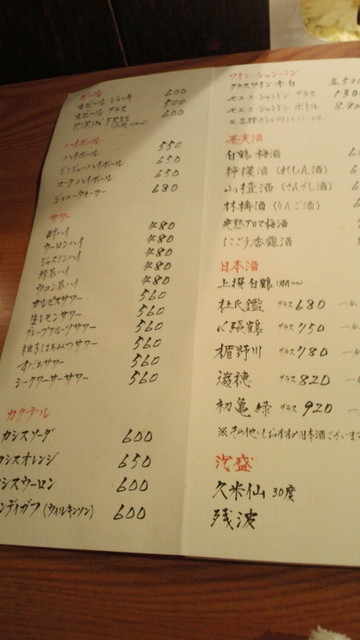 ビール
生ビール ジョッキ 600
生ビール グラス 500
KIRIN FREE 600
ハイボール
ハイボール 550
ジンジャーハイボール 650
コークハイボール 650
680
サワー
480
ウーロンハイ 480
ジャスミンハイ 480
緑茶ハイ 480
480
カルピスサワー 560
生レモンサワー 560
グレープフルーツサワー 560
柚子はちみつサワー 560
すだちサワー 560
シークワーサーサワー 560
カクテル
カシスソーダ 600
カシスオレンジ 650
シスウーロン 600
ンディガフ(ウィルキンソン) 600
ワイン シャンパン
グラスワイン 赤白
モエ・エ・シャンドン グラス
モエ・エ・シャンドン ボトル
果実酒
白鶴 梅酒
檸檬酒(れもん酒)
山査酒(さんざし酒)
林檎酒(りんご酒)
梅酒
にごり杏露酒
日本酒
上撰白鶴
杜氏鑑 グラス 680
〆張鶴 グラス 750
楯野川 グラス 780
グラス 820
初亀 緑 グラス 920
※その他にもおすすめ日本酒ございま
泡盛
久米仙 30度
残波